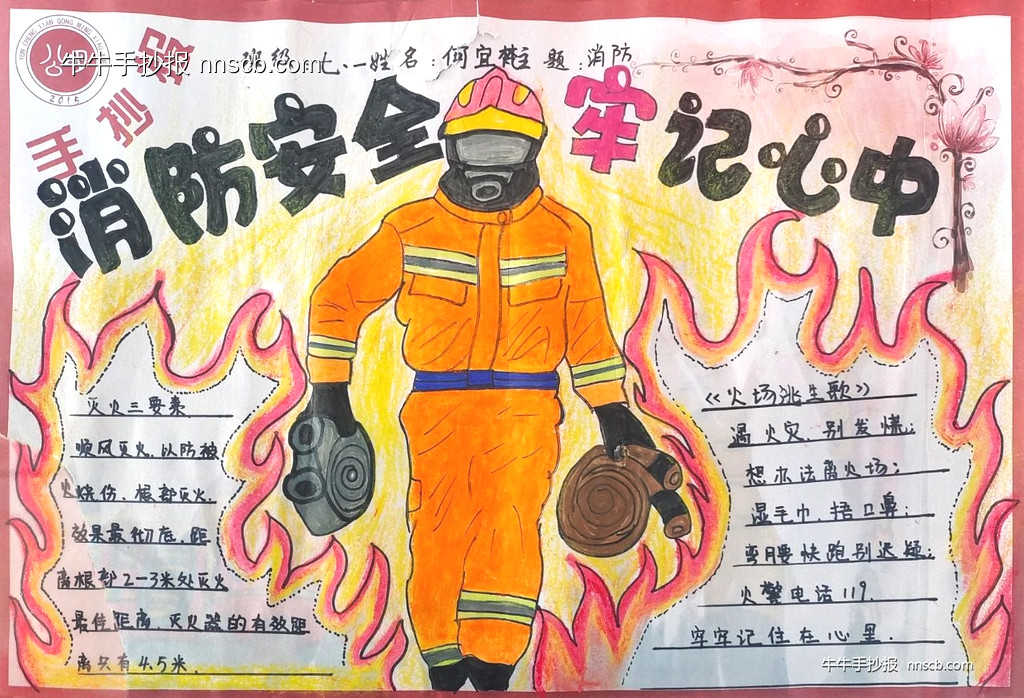 牛牛手抄报 nnscb.com
班级:七、一 姓名:何宜楚 主题:消防
2015
手抄报
消防安全牢记心中
灭火三要素
顺风灭火,以防被
火烧伤,根部灭火,
效果最彻底,距
离根部2-3米处灭火
最佳距离,灭火器的有效距
离只有4.5米.
《火场逃生歌》
遇火灾,别发慌;
想办法离火场;
湿毛巾,捂口鼻;
弯腰快跑别迟疑;
火警电话119.
牢牢记住在心里.
牛牛手抄报 nnscb.com